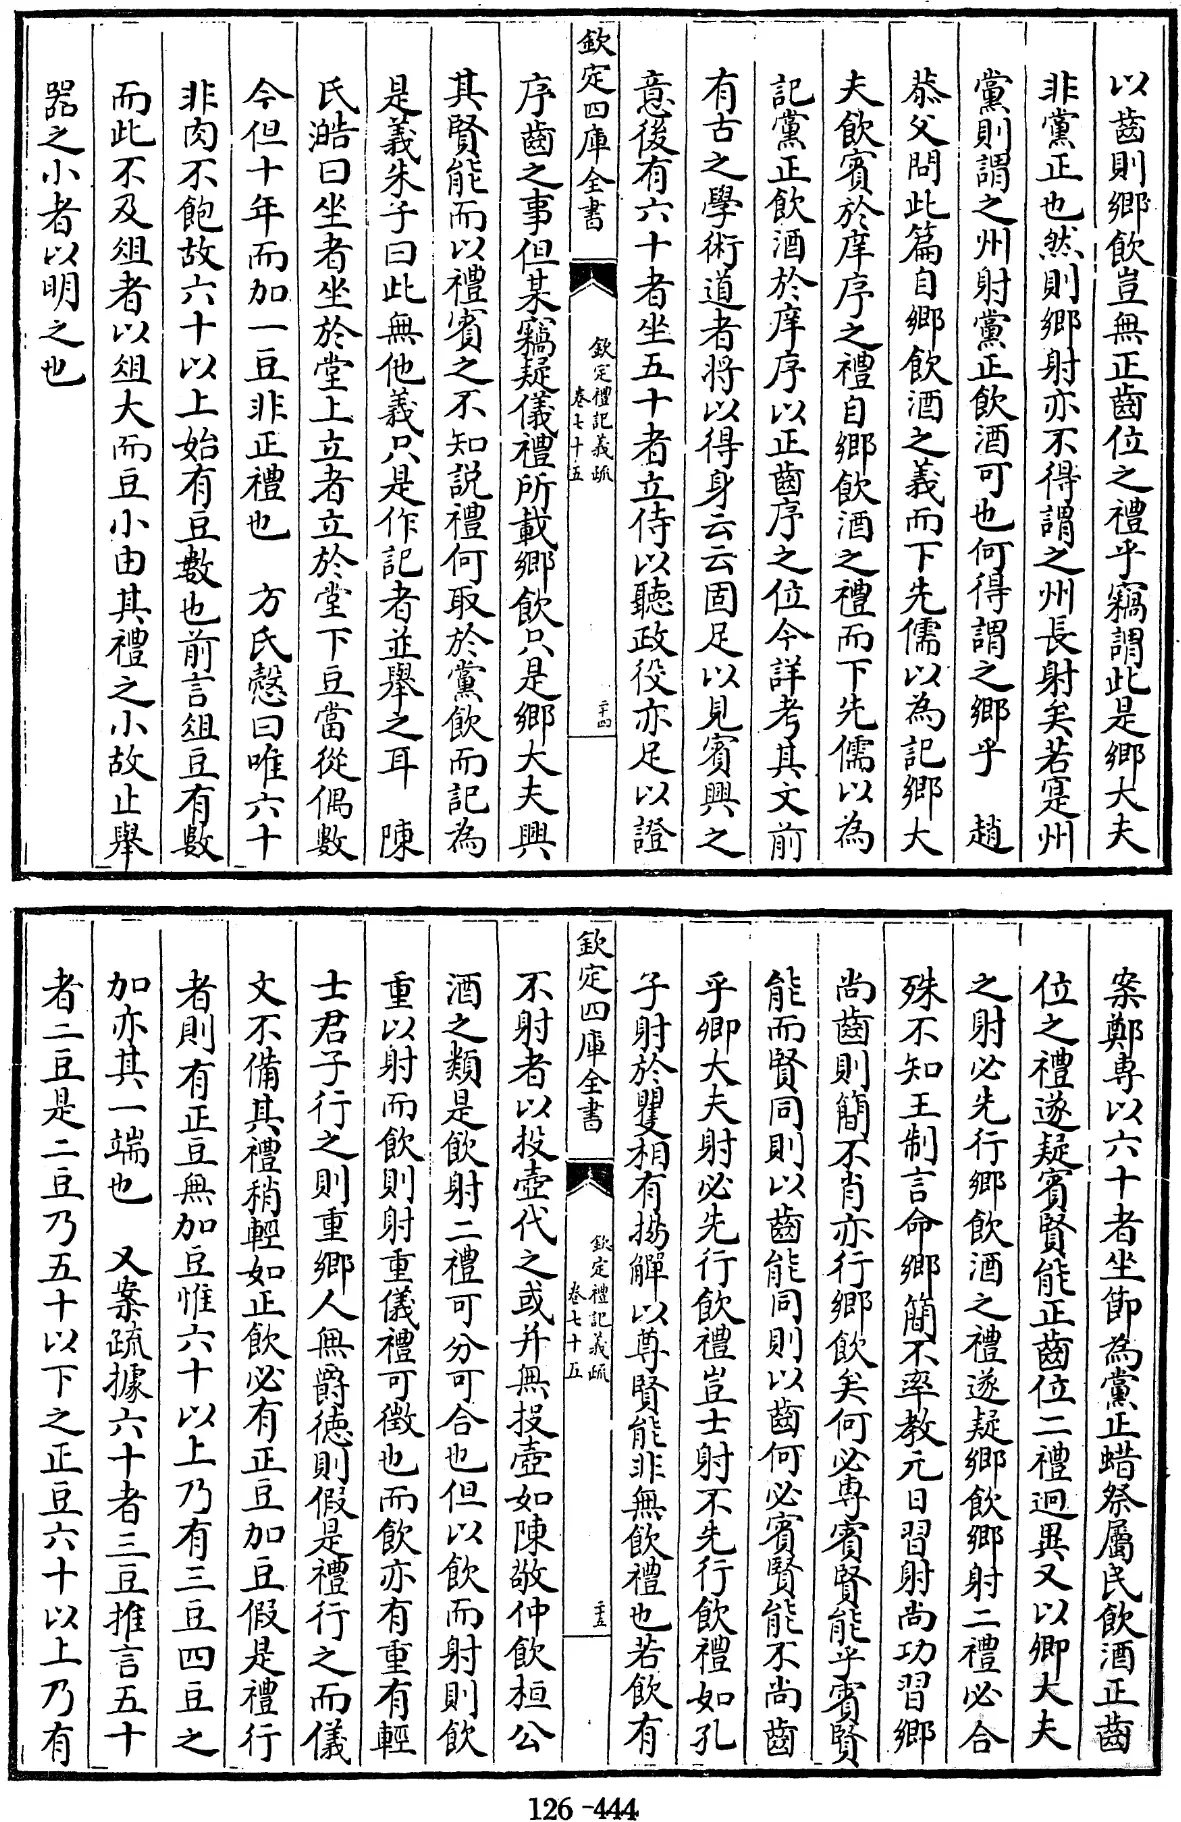 以齒則鄉飲豈無正齒位之禮乎竊謂此是鄉大夫
非黨正也然則鄉射亦不得謂之州長射矣若寔州
黨則謂之州射黨正飲酒可也何得謂之鄉乎　趙
恭父問此篇自鄉飲酒之義而下先儒以為記鄉大
夫飲賓於庠序之禮自鄉飲酒之禮而下先儒以為
記黨正飲酒於庠序以正齒序之位今詳考其文前
有古之學術道者將以得身云云固足以見賓興之
意後有六十者坐五十者立侍以聽政役亦足以證
欽定四庫全書
欽定禮記義疏
卷七十五
二十四
序齒之事但某竊疑儀禮所載鄉飲只是鄉大夫興
其賢能而以禮賓之不知説禮何取於黨飲而記為
是義朱子曰此無他義只是作記者並舉之耳　陳
氏澔曰坐者坐於堂上立者立於堂下豆當從偶數
今但十年而加一豆非正禮也　方氏慤曰唯六十
非肉不飽故六十以上始有豆數也前言俎豆有數
而此不及俎者以俎大而豆小由其禮之小故止舉
器之小者以明之也
案鄭専以六十者坐節為黨正蜡祭屬民飲酒正齒
位之禮遂疑賓賢能正齒位二禮迥異又以卿大夫
之射必先行鄉飲酒之禮遂疑鄉飲鄉射二禮必合
殊不知王制言命鄉簡不率教元日習射尚功習鄉
尚齒則簡不肖亦行鄉飲矣何必專賓賢能乎賓賢
能而賢同則以齒能同則以齒何必賓賢能不尚齒
乎卿大夫射必先行飲禮豈士射不先行飲禮如孔
子射於矍相有揚觶以尊賢能非無飲禮也若飲有
欽定四庫全書
欽定禮記義疏
卷七十五
二十五
不射者以投壺代之或并無投壺如陳敬仲飲桓公
酒之類是飲射二禮可分可合也但以飲而射則飲
重以射而飲則射重儀禮可徵也而飲亦有重有輕
士君子行之則重鄉人無爵德則假是禮行之而儀
文不備其禮稍輕如正飲必有正豆加豆假是禮行
者則有正豆無加豆惟六十以上乃有三豆四豆之
加亦其一端也　又案疏據六十者三豆推言五十
者二豆是二豆乃五十以下之正豆六十以上乃有
126-444